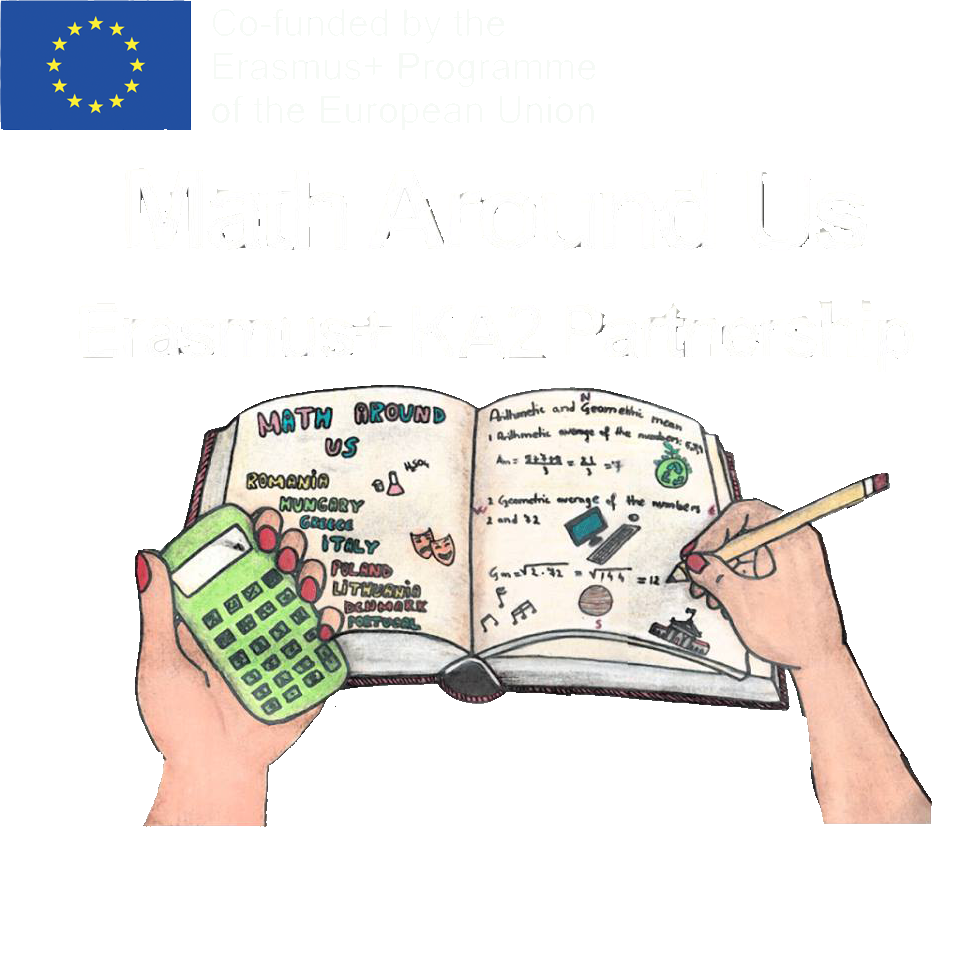 Co-funded by the
Erasmus+ Programme
of the European Union
Math Around Us
Erasmus+ KA2 Partnership
MATH AROUND
US
ROMANIA
HUNGARY
GREECE
ITALY
POLAND
LITHUANIA
DENMARK
PORTUGAL
H₂SO₄
N
Arithmetic and Geometric mean
1 Arithmetic average of the numbers:
Am = = 21/3 = 7
W
2 Geometric average of the numbers
E
2 and 72
Gm = √2·72 = √144 = 12
S